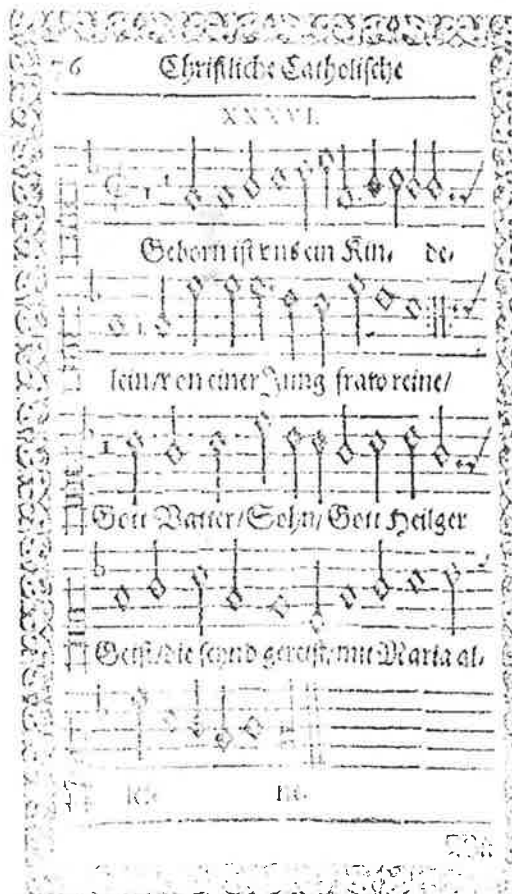 76 Christliche Catholische
XXXVI.
Geborn ist vns ein Kin- de-
lein/von einer Jung fraw reine/
Gott Vatter/Sohn/Gott Heilger
Geist/die seynd gereist/mit Maria al-
lei- ne.